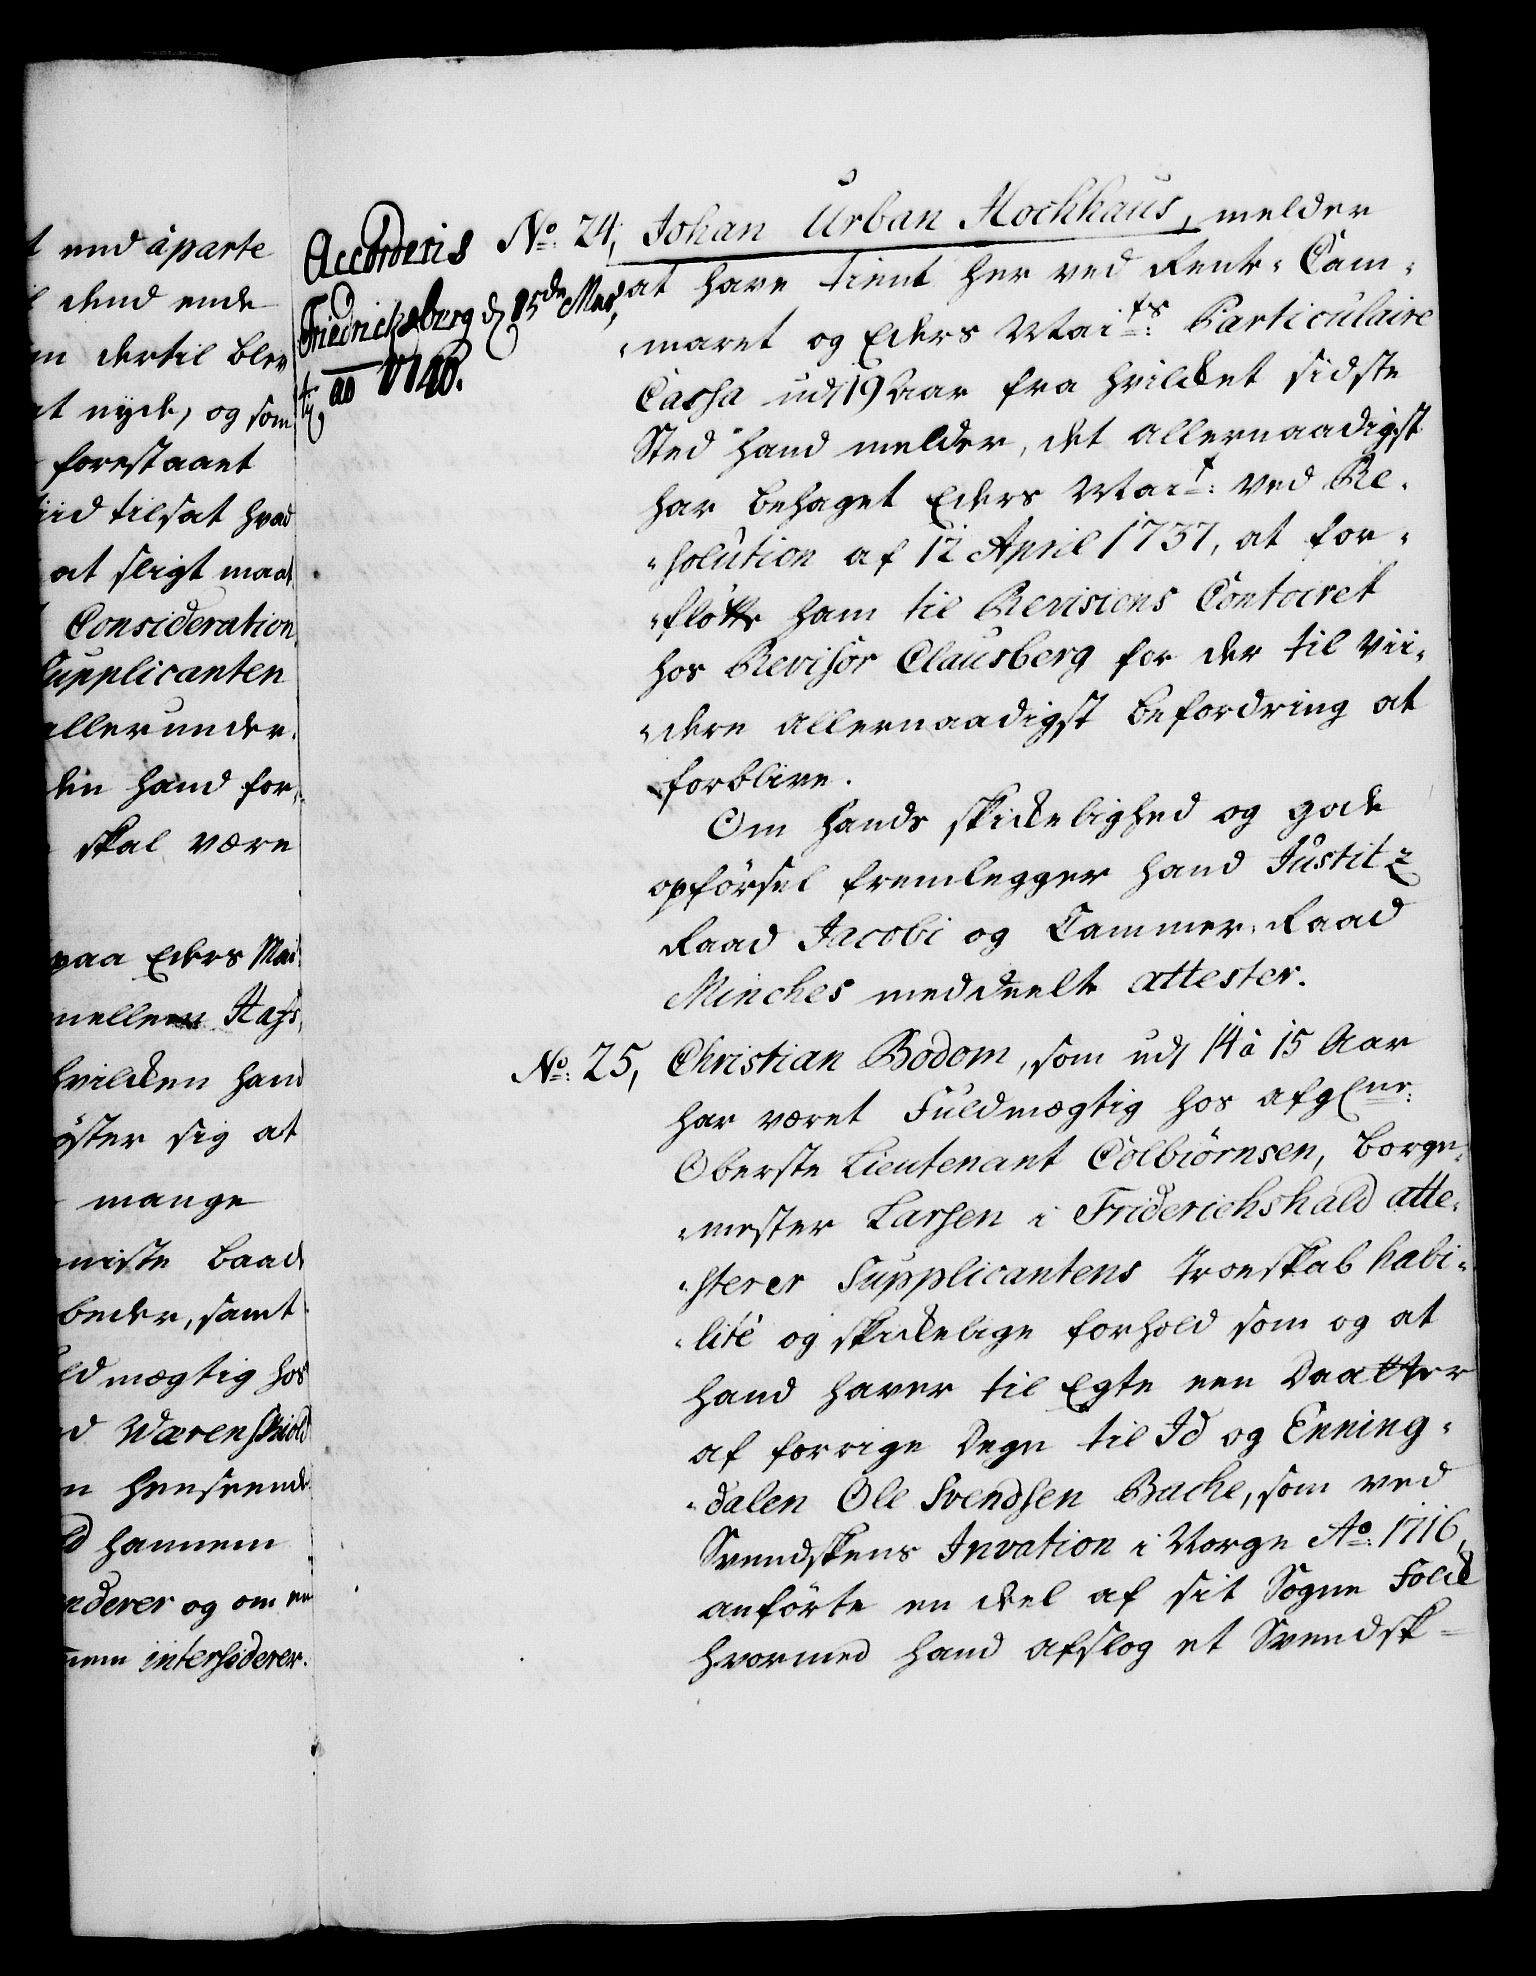 t end áparte
dend ende
en dertil blev
at nyde, og som
forestaaet
tiid tilsat hvad
at sligt maat
Consideration
Supplicanten
allerunder-
den hand for-
skal være
paa Eders Mai
hvilcken hand
sig at
mange
miste baade
beder, samt
ldmægtig hos
d Wærenskiold
n henseende
d hannem
nderer og om en
intercederer.
Accorderis
Friedrichsberg d 15de Mart,
ao 1740.
No: 24, Johan Urban Hochhaus, melder
at have tient her ved Rente-Cam-
-meret og Eders Maits: Particulaire
Cassa udj 19 Aar fra hvilcket sidste
Sted hand melder, det allernaadigst
har behaget Eders Mait: ved Re-
-solution af 12 April 1737, at for-
-flötte ham til Revisions Contoiret
hos Revisor Clausberg for der til vii-
-dere allernaadigst befordring at
forblive.
Om hands skickelighed og gode
opförsel fremlegger hand Justitz
Raad Jacobi og Cammer-Raad
Minches meddeelte attester.
No: 25, Christian Bodom, som udj 14 à 15 Aar
har været Fuldmægtig hos afgl nr:
Oberste Lieutenant Colbiörnsen, borge-
-mester Larsen i Friderichshald atte-
-sterer Supplicantens troeskab habi-
-lité og skickelige forhold som og at
hand haver til Egte een Daatter
af forrige Degn til Id og Enning-
-dalen Ole Svendsen Bache, som ved
Svendskens Invation i Norge Ao: 1716,
anförte en deel af sit Sogne Folck
hvormed hand afslog et Svendsk-